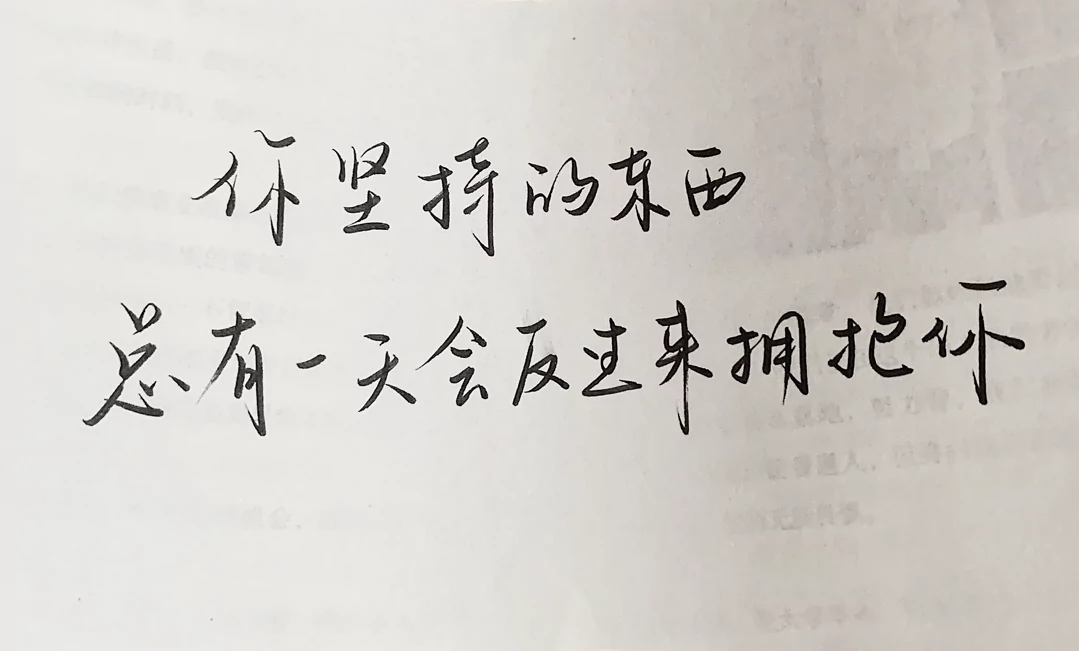 你坚持的东西
总有一天会反过来拥抱你